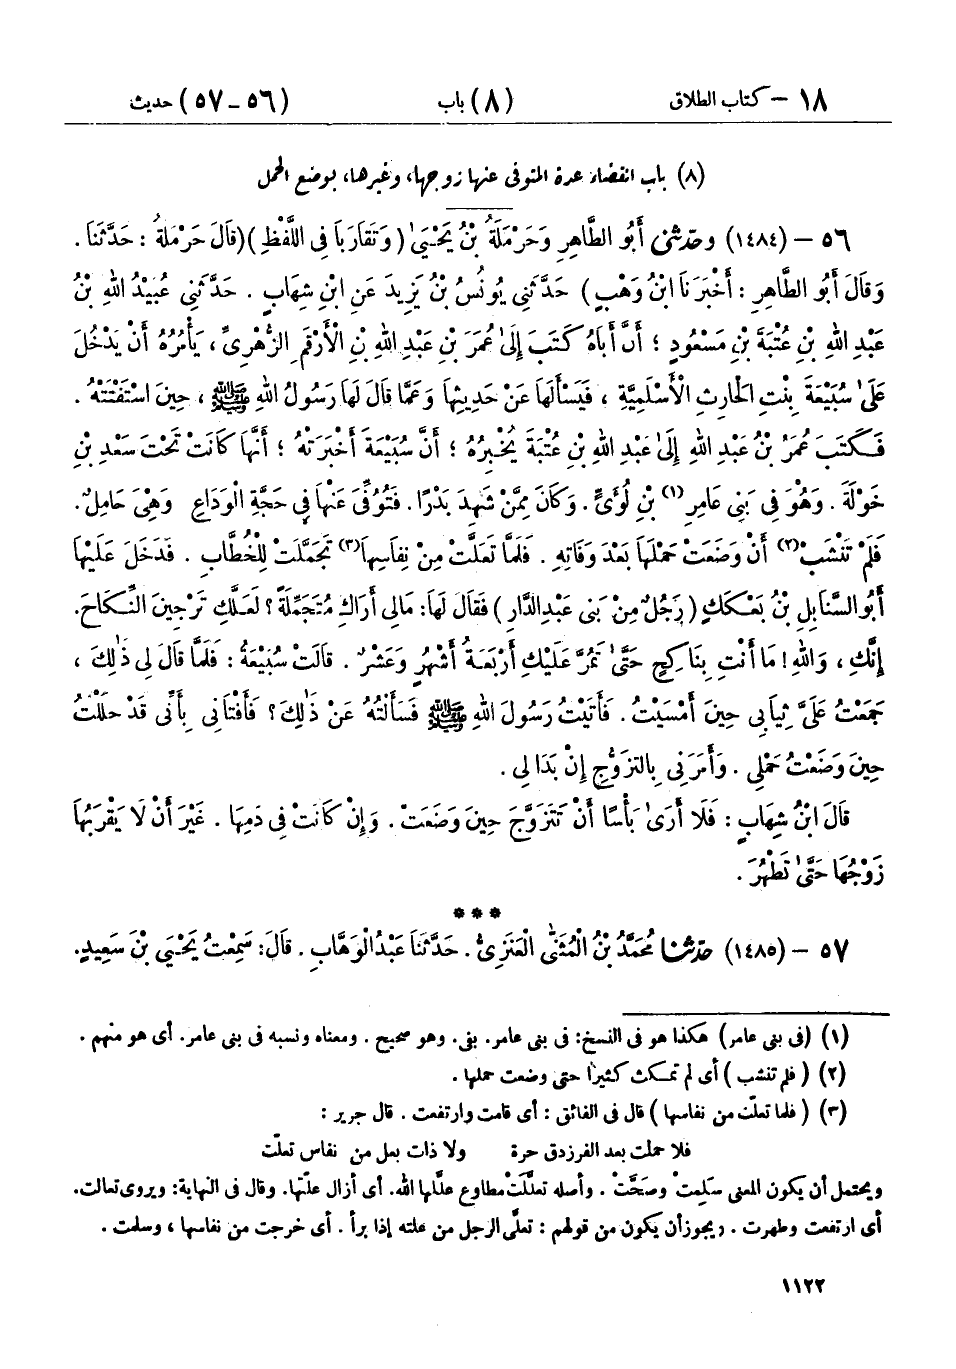 ١٨ – كتاب الطلاق (٨) باب (٥٦ – ٥٧) حديث
(٨) باب انقضاء عدة المتوفى عنها زوجها، وغيرها، بوضع الحمل
٥٦ – (١٤٨٤) وحدثنى أَبُو الطَّاهِرِ وَحَرْمَلَةُ بْنُ يَحْيَىٰ (وَتَقَارَبَا فِى اللَّفْظِ) (قَالَ حَرْمَلَةُ : حَدَّثَنَا .
وَقَالَ أَبُو الطَّاهِرِ : أَخْبَرَنَا ابْنُ وَهْبٍ) حَدَّثَنِى يُونُسُ بْنُ يَزِيدَ عَنِ ابْنِ شِهَابٍ . حَدَّثَنِى عُبَيْدُ اللهِ بْنُ
عَبْدِ اللهِ بْنِ عُتْبَةَ بْنِ مَسْعُودٍ ؛ أَنَّ أَبَاهُ كَتَبَ إِلَىٰ عُمَرَ بْنِ عَبْدِ اللهِ بْنِ الْأَرْقَمِ الزُّهْرِىِّ ، يَأْمُرُهُ أَنْ يَدْخُلَ
عَلَىٰ سُبَيْعَةَ بِنْتِ الْحَارِثِ الْأَسْلَمِيَّةِ ، فَيَسْأَلَهَا عَنْ حَدِيثِهَا وَعَمَّا قَالَ لَهَا رَسُولُ اللهِ ﷺ ، حِينَ اسْتَفْتَتْهُ .
فَكَتَبَ عُمَرُ بْنُ عَبْدِ اللهِ إِلَىٰ عَبْدِ اللهِ بْنِ عُتْبَةَ يُخْبِرُهُ ؛ أَنَّ سُبَيْعَةَ أَخْبَرَتْهُ ؛ أَنَّهَا كَانَتْ تَحْتَ سَعْدِ بْنِ
خَوْلَةَ . وَهُوَ فِى بَنِى عَامِرِ (١) بْنِ لُؤَىٍّ . وَكَانَ مِمَّنْ شَهِدَ بَدْرًا . فَتُوُفِّىَ عَنْهَا فِى حَجَّةِ الْوَدَاعِ وَهْىَ حَامِلٌ .
فَلَمْ تَنْشَبْ (٢) أَنْ وَضَعَتْ حَمْلَهَا بَعْدَ وَفَاتِهِ . فَلَمَّا تَعَلَّتْ مِنْ نِفَاسِهَا (٣) تَجَمَّلَتْ لِلْخُطَّابِ . فَدَخَلَ عَلَيْهَا
أَبُو السَّنَابِلِ بْنُ بَعْكَكٍ (رَجُلٌ مِنْ بَنِى عَبْدِ الدَّارِ) فَقَالَ لَهَا: مَالِى أَرَاكِ مُتَجَمِّلَةً ؟ لَعَلَّكِ تَرْجِينَ النِّكَاحَ.
إِنَّكِ ، وَاللهِ! مَا أَنْتِ بِنَاكِحٍ حَتَّىٰ تَمُرَّ عَلَيْكِ أَرْبَعَةُ أَشْهُرٍ وَعَشْرٌ . قَالَتْ سُبَيْعَةُ : فَلَمَّا قَالَ لِى ذَٰلِكَ ،
جَمَعْتُ عَلَىَّ ثِيَابِى حِينَ أَمْسَيْتُ . فَأَتَيْتُ رَسُولَ اللهِ ﷺ فَسَأَلْتُهُ عَنْ ذَٰلِكَ ؟ فَأَفْتَانِى بِأَنِّى قَدْ حَلَلْتُ
حِينَ وَضَعْتُ حَمْلِى . وَأَمَرَنِى بِالتَّزَوُّجِ إِنْ بَدَا لِى .
قَالَ ابْنُ شِهَابٍ : فَلَا أَرَىٰ بَأْسًا أَنْ تَتَزَوَّجَ حِينَ وَضَعَتْ . وَإِنْ كَانَتْ فِى دَمِهَا . غَيْرَ أَنْ لَا يَقْرَبُهَا
زَوْجُهَا حَتَّىٰ تَطْهُرَ .
***
٥٧ – (١٤٨٥) حدثنا مُحَمَّدُ بْنُ الْمُثَنَّى الْعَنَزِىُّ . حَدَّثَنَا عَبْدُ الْوَهَّابِ . قَالَ: سَمِعْتُ يَحْيَى بْنَ سَعِيدٍ.
(١) (فى بنى عامر) هكذا هو فى النسخ: فى بنى عامر. بفى. وهو صحيح . ومعناه ونسبه فى بنى عامر. أى هو منهم .
(٢) (فلم تنشب) أى لم تمكث كثيرًا حتى وضعت حملها .
(٣) (فلما تعلّت من نفاسها) قال فى الفائق : أى قامت وارتفعت . قال جرير :
فلا حملت بعد الفرزدق حرة ولا ذات بعل من نفاس تعلّت
ويحتمل أن يكون المعنى سَلِمتْ وصَحَّتْ . وأصله تعلَّلتْ مطاوع علَّلها الله. أى أزال علّتها. وقال فى النهاية: ويروى تعالت.
أى ارتفعت وطهرت . ويجوز أن يكون من قولهم : تعلَّى الرجل من علته إذا برأ . أى خرجت من نفاسها ، وسلمت .
١١٢٢